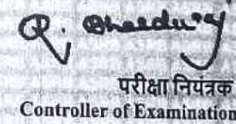 R. Bhaduri
परीक्षा नियंत्रक
Controller of Examination